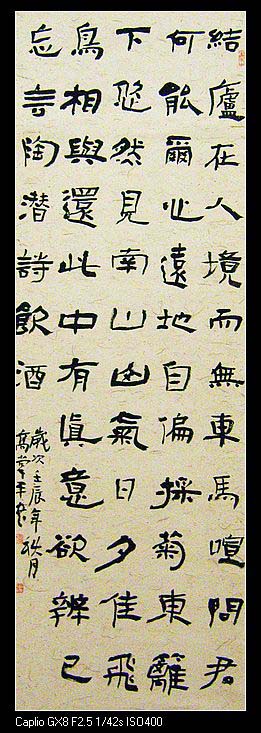 結廬在人境而無車馬喧問君
何能爾心遠地自偏採菊東籬
下悠然見南山山氣日夕佳飛
鳥相與還此中有眞意欲辨已
忘言陶潜詩飲酒
歲次壬辰年秋月
高
Caplio GX8 F2.5 1/42s ISO400